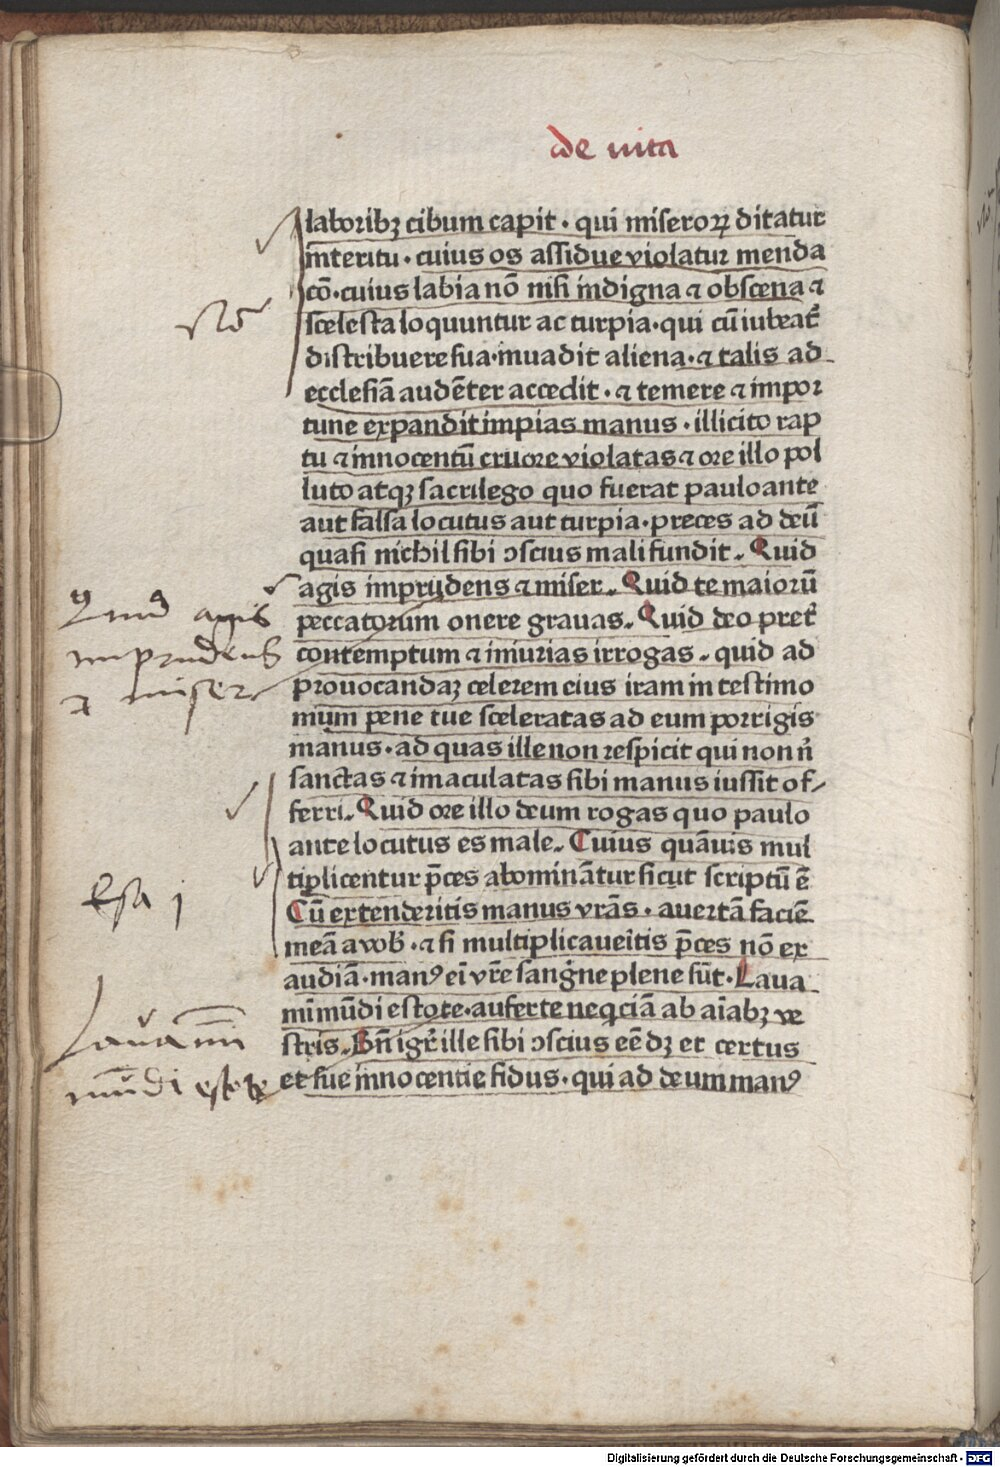 de uita
laboribꝫ cibum capit · qui miseroꝝ ditatur
interitu · cuius os assidue violatur menda
cō · cuius labia nō nisi indigna ⁊ obscena ⁊
scelesta loquuntur ac turpia · qui cū iubeat᷑
distribuere sua · inuadit aliena · ⁊ talis ad
ecclesiā audēter accedit · ⁊ temere ⁊ impor
tune expandit impias manus · illicito rap
tu ⁊ innocentū cruore violatas ⁊ ore illo pol
luto atqꝫ sacrilego quo fuerat pauloante
aut falsa locutus aut turpia · preces ad deū
quasi nichil sibi ↄscius mali fundit. Quid
agis imprudens ⁊ miser. Quid te maiorū
peccatorum onere grauas. Quid deo pret᷑
contemptum ⁊ iniurias irrogas. quid ad
prouocandaꝫ celerem eius iram in testimo
nium pene tue sceleratas ad eum porrigis
manus · ad quas ille non respicit qui non n̄
sanctas ⁊ imaculatas sibi manus iussit of/
ferri. Quid ore illo deum rogas quo paulo
ante locutus es male. Cuius quāuis mul
tiplicentur p̄ces abominātur sicut scriptū ē
Cū extenderitis manus vrās · auertā faciē
meā a vob᷑ · ⁊ si multiplicaueītis p̄ces nō ex
audiā · manꝰ eī vr̄e sanḡne plene sūt · Laua
mī mūdi estote · auferte neqͥciā ab aīabꝫ ve
stris. Bn̄ igr̄ ille sibi ↄscius eē dꝫ et certus
et sue innocentie fidus · qui ad deum manꝰ
No͞
Quid agis
imprudens
⁊ miser
Esa j
Lauamī
mūdi estote
Digitalisierung gefördert durch die Deutsche Forschungsgemeinschaft - DFG